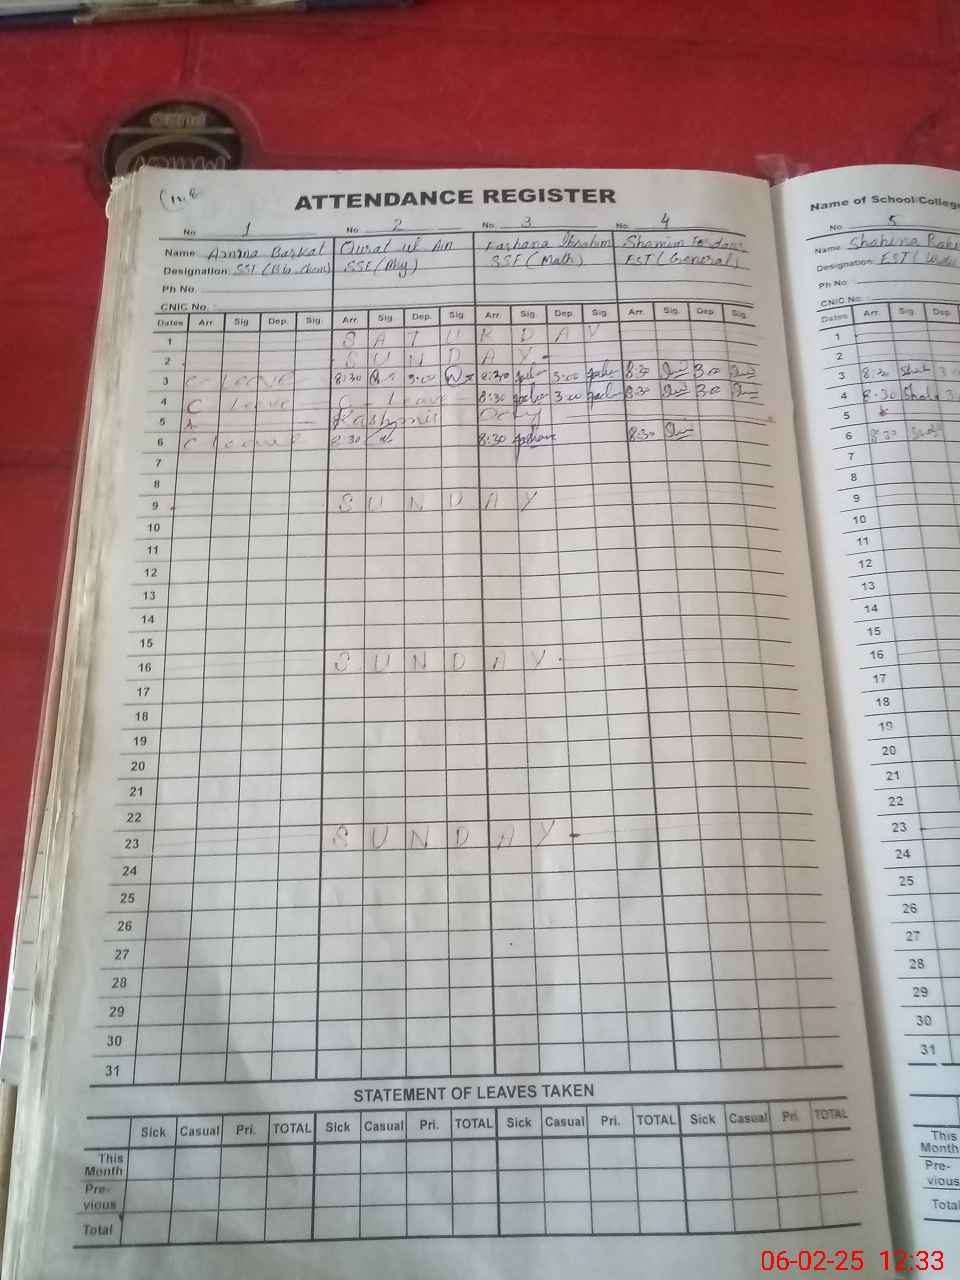 ATTENDANCE REGISTER
Name of School/College
No. 1 No. 2 No. 3 No. 4
Name Amina Name Qurat ul Ain Farhana Ibrahim Shamim
Designation: SST (Bio. Chem) SSE (Phy) SSE (Math) EST (General)
Ph No.
CNIC No.:
Dates Arr. Sig. Dep. Sig. Arr. Sig. Dep. Sig. Arr. Sig. Dep. Sig. Arr. Sig. Dep. Sig.
1 SATURDAY
2 SUNDAY
3 C Leave 8:30 3:00 8:30 3:00 8:30 3:00
4 C Leave C Leave 8:30 3:00 8:30 3:00
5 Kashmir Day
6 C Leave 8:30 8:30 8:30
7
8
9 SUNDAY
10
11
12
13
14
15
16 SUNDAY
17
18
19
20
21
22
23 SUNDAY
24
25
26
27
28
29
30
31
STATEMENT OF LEAVES TAKEN
Sick Casual Pri. TOTAL Sick Casual Pri. TOTAL Sick Casual Pri. TOTAL Sick Casual Pri. TOTAL
This Month
Pre-vious
Total
No. 5
Name: Shahina
Designation: EST
Ph No.:
CNIC No.:
Dates Arr. Sig. Dep.
1
2
3 8:30
4 8:30
5
6 8:30
7
8
9
10
11
12
13
14
15
16
17
18
19
20
21
22
23
24
25
26
27
28
29
30
31
This Month
Pre-vious
Total
06-02-25 12:33